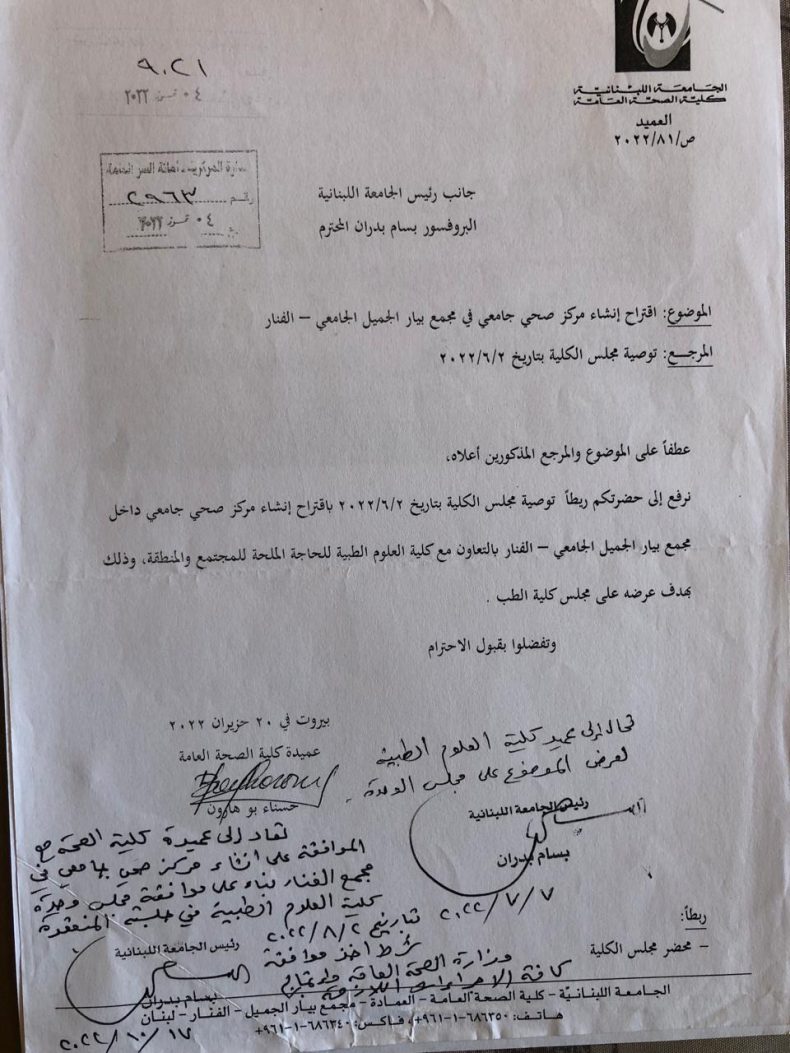 الجامعة اللبنانية
كلية الصحة العامة
العميد
ص/٢٠٢٢/٨١
٩٠٢١
٠٤ تموز ٢٠٢٢
رقم ٢٩٦٣
٠٤ تموز ٢٠٢٢
جانب رئيس الجامعة اللبنانية
البروفسور بسام بدران المحترم
الموضوع: اقتراح إنشاء مركز صحي جامعي في مجمع بيار الجميل الجامعي – الفنار
المرجـــع: توصية مجلس الكلية بتاريخ ٢٠٢٢/٦/٢
عطفاً على الموضوع والمرجع المذكورين أعلاه،
نرفع إلى حضرتكم ربطاً توصية مجلس الكلية بتاريخ ٢٠٢٢/٦/٢ باقتراح إنشاء مركز صحي جامعي داخل
مجمع بيار الجميل الجامعي – الفنار بالتعاون مع كلية العلوم الطبية للحاجة الملحة للمجتمع والمنطقة، وذلك
بهدف عرضه على مجلس كلية الطب .
وتفضلوا بقبول الاحترام
بيروت في ٢٠ حزيران ٢٠٢٢
عميدة كلية الصحة العامة
حسناء بو هارون
تحال إلى عميد كلية العلوم الطبية
لعرض الموضوع على مجلس الوحدة .
رئيس الجامعة اللبنانية
بسام بدران
٢٠٢٢/٧/٧
تعاد إلى عميدة كلية الصحة مع
الموافقة على انشاء مركز صحي جامعي في
مجمع الفنار بناء على موافقة مجلس وحدة
كلية العلوم الطبية في جلسته المنعقدة
بتاريخ ٢٠٢٢/٨/٢
شرط اخذ موافقة
وزارة الصحة العامة
كافة الاجراءات اللازمة
رئيس الجامعة اللبنانية
بسام بدران
٢٠٢٢/١٠/١٧
ربطاً:
– محضر مجلس الكلية
الجامعة اللبنانية – كلية الصحة العامة – العمادة – مجمع بيار الجميل – الفنار – لبنان
هاتف: ٦٨٦٣٥٠-١-٩٦١+ ، فاكس: ٦٨٦٣٤٠-١-٩٦١+